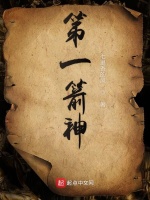 第一箭神
起点中文网